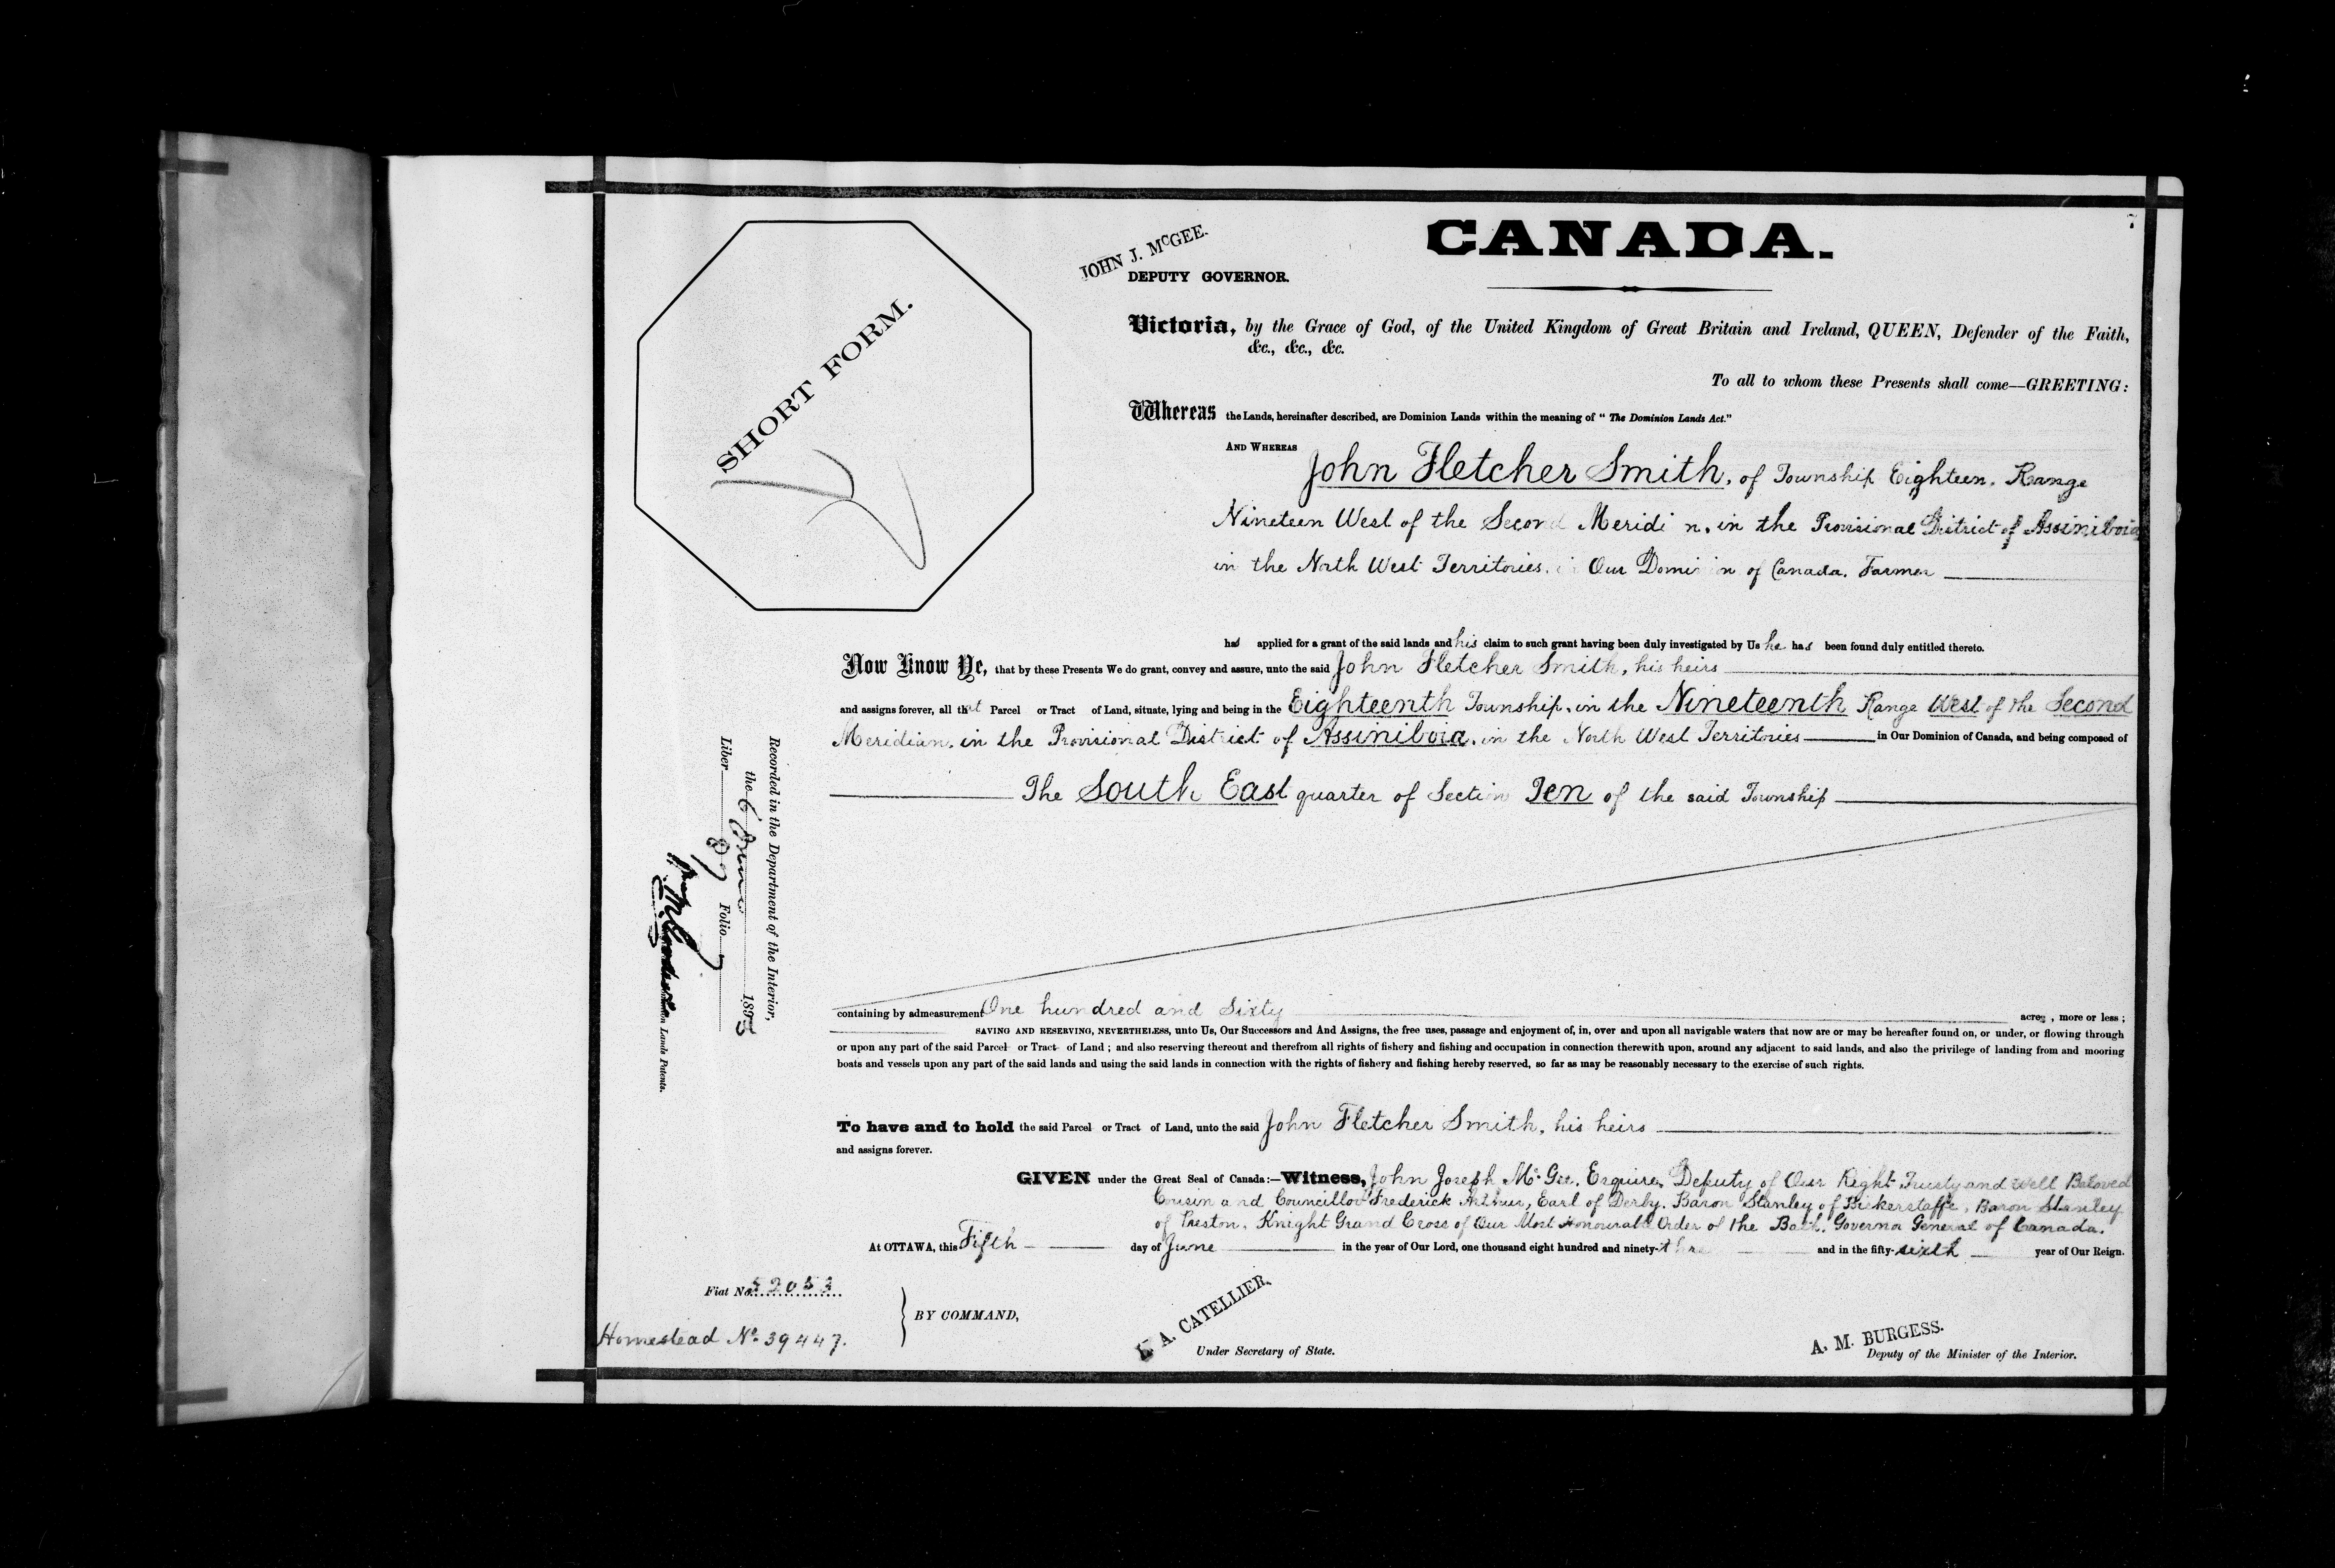 7
CANADA.
JOHN J. McGEE.
DEPUTY GOVERNOR.
SHORT FORM.
Victoria, by the Grace of God, of the United Kingdom of Great Britain and Ireland, QUEEN, Defender of the Faith,
&c., &c., &c.
To all to whom these Presents shall come—GREETING:
Whereas the Lands, hereinafter described, are Dominion Lands within the meaning of "The Dominion Lands Act."
AND WHEREAS
John Fletcher Smith, of Township Eighteen, Range
Nineteen West of the Second Meridi n, in the Provisional District of Assiniboia
in the North West Territories, in Our Domi n of Canada, Farmer
has applied for a grant of the said lands and his claim to such grant having been duly investigated by Us he has been found duly entitled thereto.
Now Know Ye, that by these Presents We do grant, convey and assure, unto the said John Fletcher Smith, his heirs
and assigns forever, all that Parcel or Tract of Land, situate, lying and being in the Eighteenth Township, in the Nineteenth Range West of the Second
Meridian, in the Provisional District of Assiniboia, in the North West Territories in Our Dominion of Canada, and being composed of
The South East quarter of Section Ten of the said Township
containing by admeasurement One hundred and Sixty acres, more or less;
SAVING AND RESERVING, NEVERTHELESS, unto Us, Our Successors and And Assigns, the free uses, passage and enjoyment of, in, over and upon all navigable waters that now are or may be hereafter found on, or under, or flowing through
or upon any part of the said Parcel or Tract of Land; and also reserving thereout and therefrom all rights of fishery and fishing and occupation in connection therewith upon, around any adjacent to said lands, and also the privilege of landing from and mooring
boats and vessels upon any part of the said lands and using the said lands in connection with the rights of fishery and fishing hereby reserved, so far as may be reasonably necessary to the exercise of such rights.
To have and to hold the said Parcel or Tract of Land, unto the said John Fletcher Smith, his heirs
and assigns forever.
GIVEN under the Great Seal of Canada:—Witness, John Joseph McGee, Esquire, Deputy of Our Right Trusty and Well Beloved
Cousin and Councillor Frederick Arthur, Earl of Derby, Baron Stanley of Bickerstaffe, Baron Stanley
of Preston, Knight Grand Cross of Our Most Honourable Order of the Bath, Governor General of Canada.
At OTTAWA, this Fifth day of June in the year of Our Lord, one thousand eight hundred and ninety-three and in the fifty-sixth year of Our Reign.
Fiat No. 52053
Homestead No. 39447.
BY COMMAND,
A. CATELLIER,
Under Secretary of State.
A. M. BURGESS.
Deputy of the Minister of the Interior.
Recorded in the Department of the Interior,
the 6 June 1893
Liber 87 Folio 7
Lands Patents.